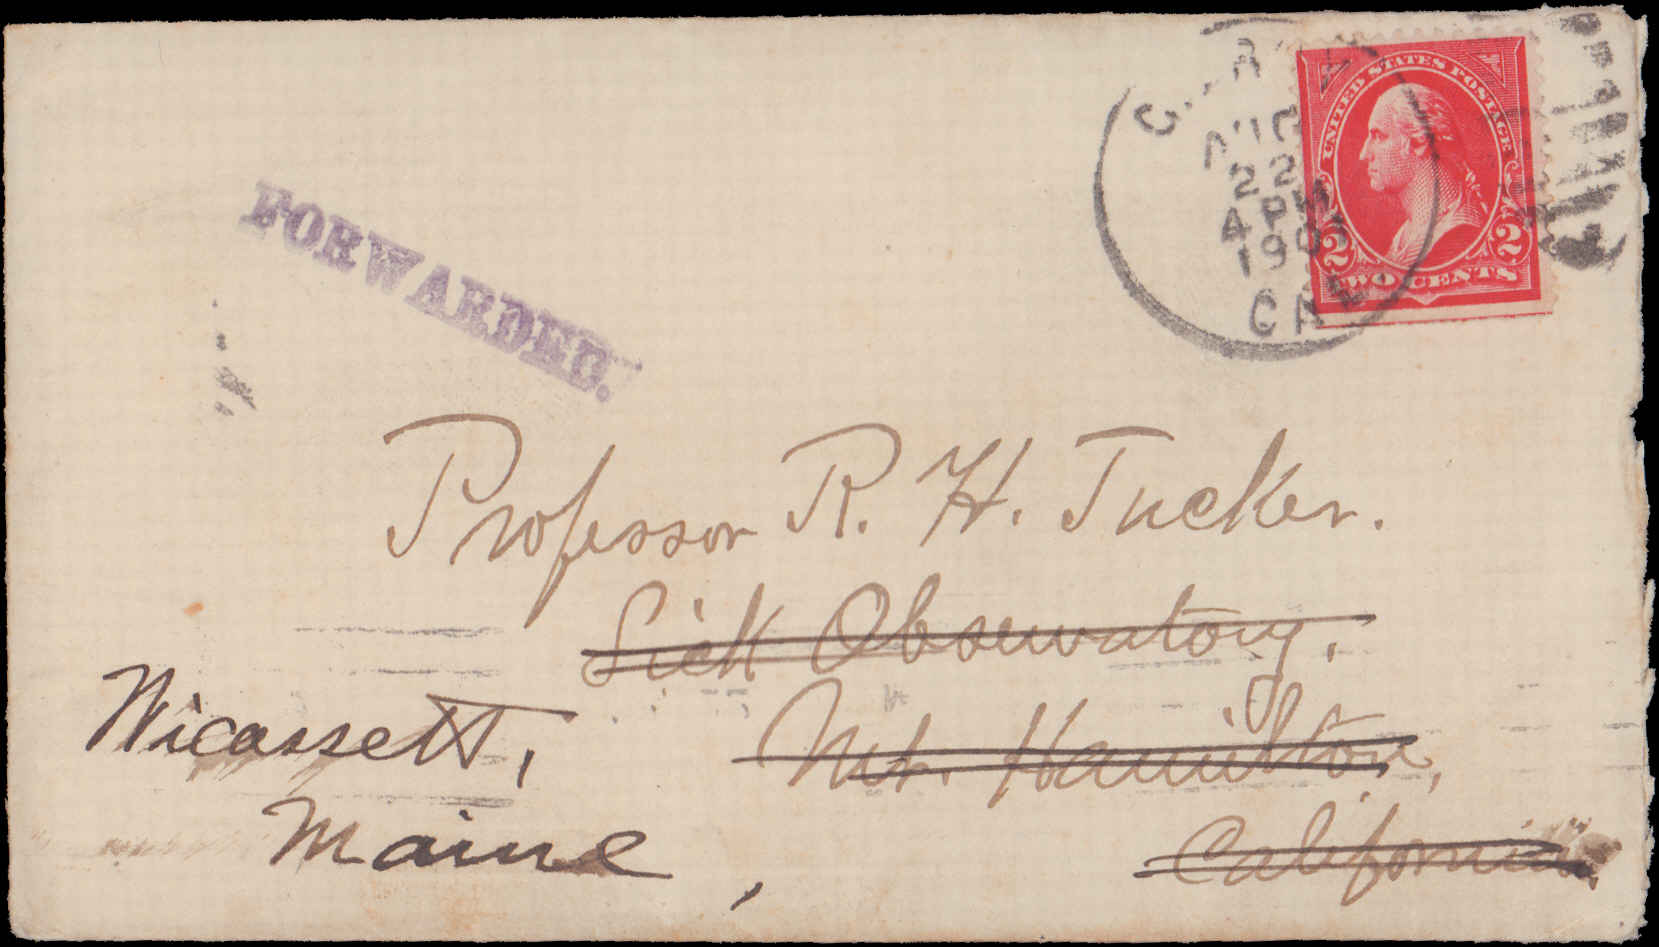 UNITED STATES POSTAGE
2 2
TWO CENTS
AUG
22
4 PM
190
CAL
FORWARDED.
Professor R. H. Tucker.
Lick Observatory.
Mt. Hamilton,
California.
Wicassett,
Maine,